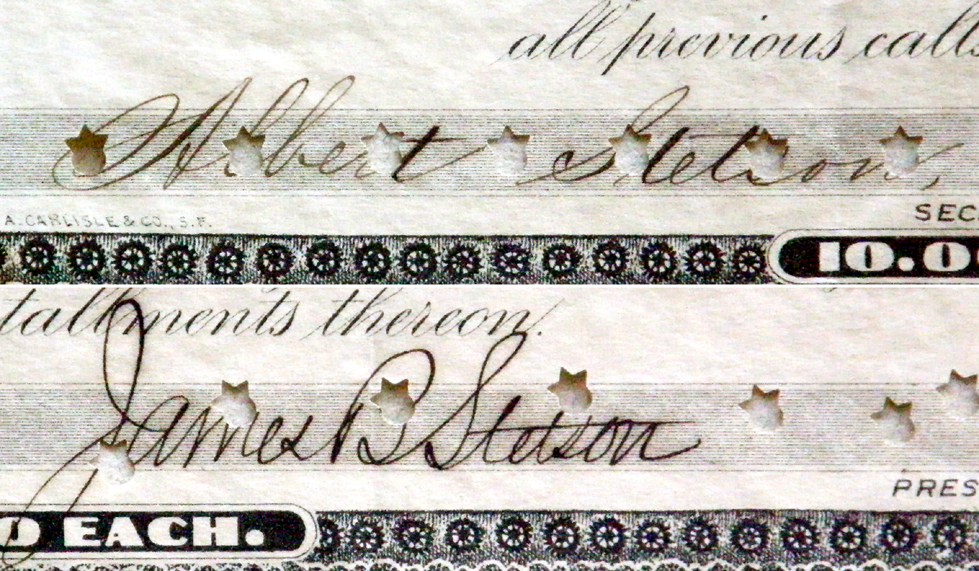 all previous calls
Albert Stetson,
A. CARLISLE & CO., S.F.
SEC
10.0
tallments thereon.
James B Stetson
PRES
D EACH.